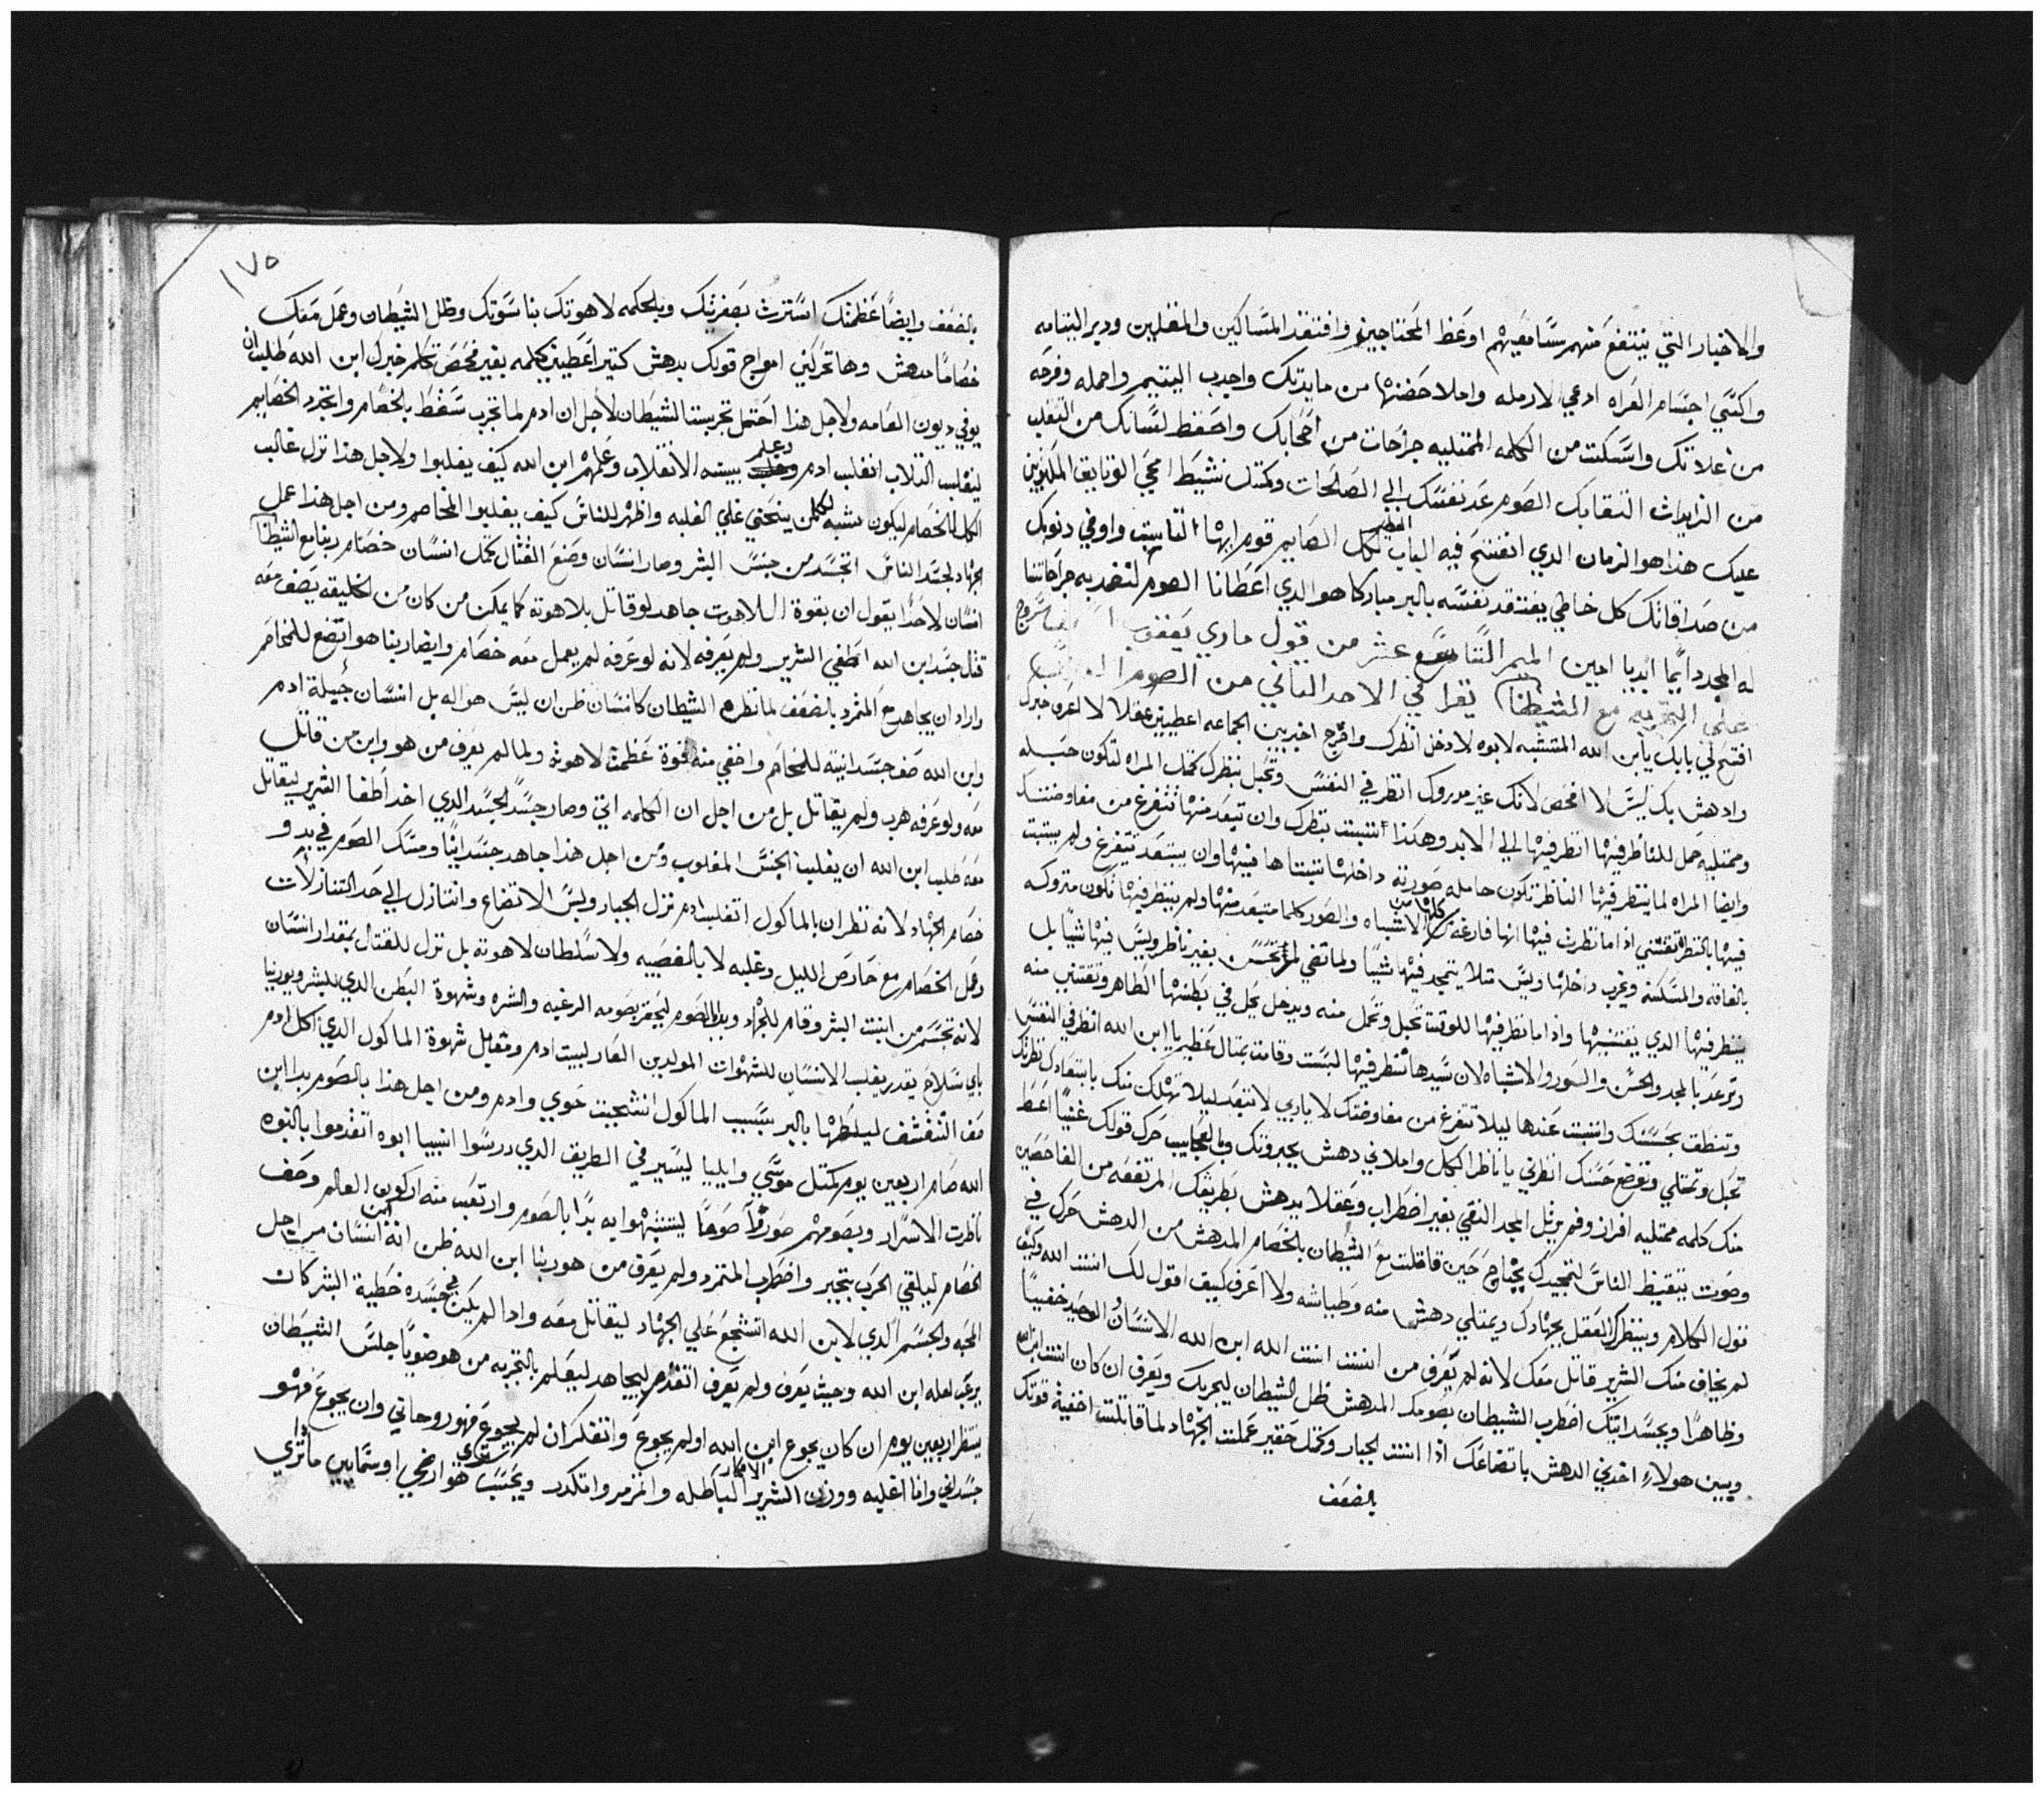 والاخبار التي ينتفع منهم سامعيهم اوعظ المحتاجين وافتقد المساكين والمقلين ودبر اليتامه
واكسي اجسام العراه ادعي الارمله واملا حضنها من مايدتك واجدب اليتيم واحمله وفرحه
من غلاتك واسكت من الكلمه الممتليه جراحات من اصحابك واحفظ لسانك من التقلب
من الزايدات القابك الصوم عد نفسك الي الصالحات ومكتك نشيط امحي الوثايق الملزبين
عليك هذا هو الزمان الدي انفتح فيه الباب العظيم لكل الصايم قوم ايها التايب واوفي دنوبك
من صدافاتك كل خاطي يفتقد نفسه بالبر مباركا هو الدي اعطانا الصوم لنضمد به جراحاتنا
له المجد دايما ابديا امين الميمر التاسع عشر من قول ماري يعقوب السروجي
علي التجربه مع الشيطان يقرا في الاحد التاني من الصوم
افتح لي بابك يا ابن الله المتشبه لابوه لادخل انظرك واخرج اخبر بين الجماعه اعطيني عقلا لا اعرف خبرك
وادهش بك ليس لا افحص لانك غير مدروك انظر في النفس وتحبل بنظرك كمتل المراه لتكون حبله
وممتليه حمل للناظر فيها انظر فيها الي الابد وهكذا اتتبت بنظرك وان تبعد منها تتفرغ من مفاوضتك
وايضا المراه لما ينظر فيها الناظر تكون حامله صورته داخلها تتبتاها فيها وان يبتعد تتفرغ ولم يتبت
فيها بالنظر تقتني اذا ما نظرت فيها انها فارغه كلها من الاشباه والصور كلما متبعد منها ولم ينظر فيها تكون متروكه
بالفاقه والمسكنه وتخرب داخلها وليس تتلا يتمجد فيها شيا ولما تقي لم تحسن بغير ناظر وليس فيها شيا بل
ينظر فيها الدي يقتنيها واذا ما نظر فيها للوقت تحبل وتحمل منه ويدخل يحل في بطنها الطاهر وتقتني منه
وترعد بالمجد والحسن والسور والاشباه لان سيدها نظر فيها لبست وقامت بمتال عظيم يا ابن الله انظر في النفس
وتنطق بحسنك واتتبت عندها ليلا تتفرغ من مفاوضتك لا ياربي لا تتبعد ليلا تهلك منك بابتعادك نظرتك
تحبل وتمتلي وتوضع حسنك انظرني يا ناظر الكل واملاني دهش بجبروتك وبالعجايب حرك قولك غنيا اعط
منك كلمه ممتليه افراز وفم يرتل المجد النقي بغير اضطراب وعقلا يدهش بطريقك المرتفعه من الفاحصين
وصوت يتيقظ الناس لتمجيدك يحتاج حين قاتلت مع الشيطان بالخصام المدهش من الدهش حرك في
نول الكلام وينظرك العقل بجهادك ويمتلي دهش منه وطياشه ولا اعرف كيف اقول لك انت الله وكيف
لم يخاف منك الشرير قاتل معك لانه لم يعرف من انت انت الله ابن الله الانسان الوحيد خفيا
وظاهرا وبجسدانيتك اضطرب الشيطان بصومك المدهش ظل الشيطان ليجربك ويعرف ان كان انت
وبين هولاء اخدني الدهش باتضاعك اذا انت الجبار وكمتل حقير عملت الجهاد لما قاتلت اخفية قوتك
بالضعف
١٧٥
بالضعف وايضا عظمتك استترت بصغرتك وبالحكمه لاهوتك بناسوتك وظل الشيطان وعمل معك
خصاما مدهش وها تحركني امواج قولك بدهش كتير اعطيني كلمه بغير فحص تكلم خبرك ابن الله طلب ان
يوفي ديون العامه ولاجل هذا احتمل تجربت الشيطان لاجل ان ادم لما تجرب سقط بالخصام واتجرد الخصايم
ليقلب التلاب انقلب ادم وعلم بيته الانقلاب وعلمهم ابن الله كيف يغلبوا ولاجل هذا نزل غالب
الكل للخصام ليكون مشبه لكلمن ينحني علي الغلبه واظهر للناس كيف يغلبوا المخاصم ومن اجل هذا عمل
الجهاد لجسد الناس اتجسد من جنس البشر وصار انسان وصنع القتال كمتل انسان خصام ربنا مع الشيطان
انسان لا احدا يقول ان بقوة اللاهوت جاهد لو قاتل بلاهوته كما يمكن من كان من الخليقه يصف معه
قتل جسد ابن الله اطغي الشرير ولم يعرفه لانه لو عرفه لم يعمل معه خصام وايضا ربنا هو اتضع للمخاصم
واراد ان يجاهد مع المتمرد بالضعف لما نظره الشيطان كانسان ظن ان ليس هو اله بل انسان جبيلة ادم
وابن الله صف جسدانيته للمخاصم واخفي منه قوة عظمة لاهوته ولما لم يعرف من هو وابن من قاتل
معه ولو عرفه هرب ولم يقاتل بل من اجل ان الكلمه اتي وصار جسدا لجسد الدي اخد اطغا الشرير ليقاتل
معه طلب ابن الله ان يغلب الجنس المغلوب ومن اجل هذا جاهد جسدانيا ومسك الصوم في بدو
خصام الجهاد لانه نظر ان بالماكول اتغلب ادم نزل الجبار ولبس الاتضاع واتنازل الي حد التنازلات
وعمل الخصام مع حارص الليل وغلبه لا بالغصبيه ولا سلطان لاهوته بل نزل للقتال بمقدار انسان
لانه تجسم من ابنت البشر وقام للجهاد وبدا بالصوم ليحقر بصومه الرغبه والشره وشهوة البطن الدي للبشر ويورينا
باي سلاح يقدر يغلب الانسان للشهوات المولدين العار لبيت ادم ومقابل شهوة الماكول الدي اكل ادم
صف التقشف ليلطها بالبر بسبب الماكول انشجبت حوي وادم ومن اجل هذا بالصوم بدا ابن
الله صام اربعين يوم كمتل موسي وايليا ليسير في الطريق الدي درسوا انبيا ابوه اتقدموا بالنبوه
ناظرت الاسرار وبصومهم صوروا صوما ليتشبهوا به بدا بالصوم وارتعب منه اركون العالم وصف
الخصام ليلقي الحرب بتجبر واضطرب المتمرد ولم يعرف من هو ربنا ابن الله ظن انه ابن انسان من اجل
المحبه والجسم الدي لابن الله اتشجع علي الجهاد ليقاتل معه وادا لم يكن في جسده خطية البشر كان
يرعب لعله ابن الله وحيث يعرف ولم يعرف اتقدم ليجاهد ليعلم بالتجربه من هو ضويا جلس الشيطان
ينتظر اربعين يوم ان كان يجوع ابن الله او لم يجوع واتفكر ان لم يجوع فهو روحاني وان يجوع فهو
جسداني وانا اغلبه ووزن الشرير الافكار الباطله واتمرمر واتكدر ويحسب تري هو ارضي او سمايين ماتري